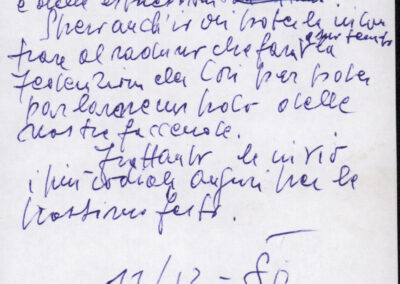 e delle
Spero anch'io di poterla incon
a suo tempo
trare al raduno che farà la
Federazione dei Cori per poter
parlare un poco delle
nostre faccende.
Frattanto le invio
i più cordiali auguri per le
prossime feste.
12 - 80